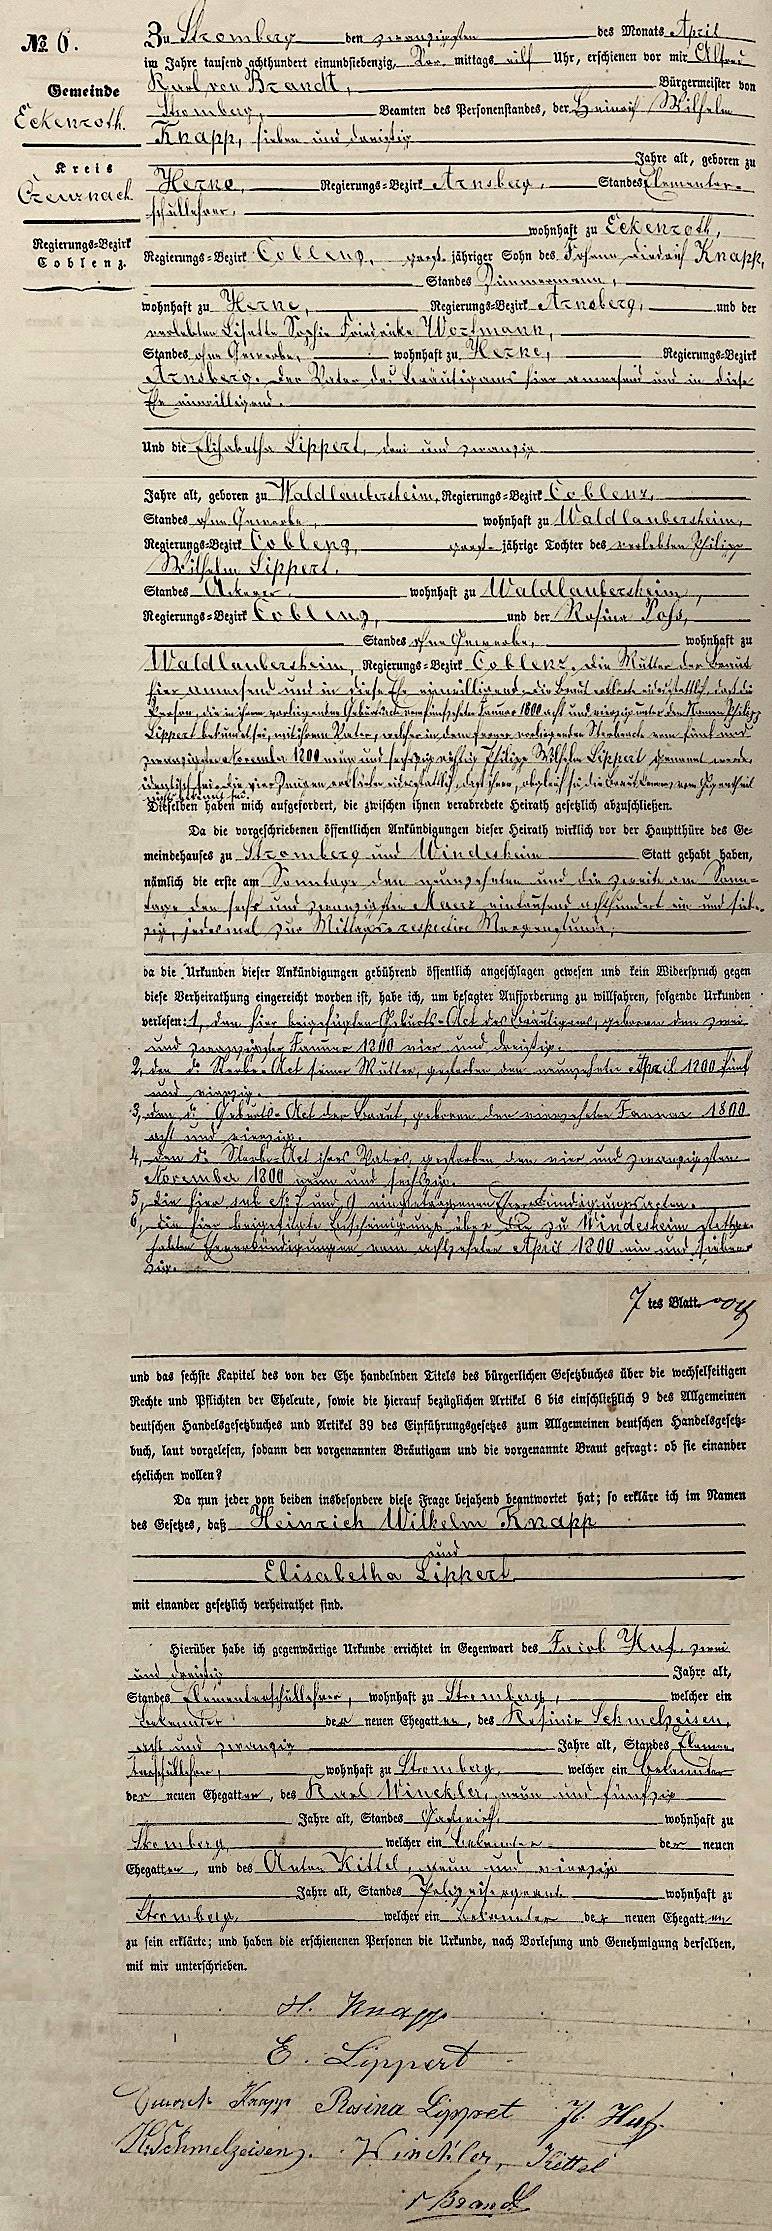 № 6.
Gemeinde
Eckenroth.
Kreis
Creuznach
Regierungs-Bezirk
Coblenz.
Zu Stromberg den zwanzigsten des Monats April
im Jahre tausend achthundert einundsiebenzig, Vor mittags eilf Uhr, erschienen vor mir Alfred
Karl von Brandt, Bürgermeister von
Stromberg, Beamten des Personenstandes, der Heinrich Wilhelm
Knapp, sieben und dreißig
Jahre alt, geboren zu
Herne, Regierungs-Bezirk Arnsberg, Standes Elementar-
schullehrer,
wohnhaft zu Eckenroth,
Regierungs-Bezirk Coblenz, jähriger Sohn des Johann Diedrich Knapp,
Standes Zimmermann,
wohnhaft zu Herne, Regierungs-Bezirk Arnsberg, und der
verlebten Lisette Sophie Friedricke Wortmann,
Standes ohne Gewerbe, wohnhaft zu Herne, Regierungs-Bezirk
Arnsberg. Der Vater des Bräutigams hier anwesend und in diese
Ehe einwilligend.
Und die Elisabetha Lippert, drei und zwanzig
Jahre alt, geboren zu Waldlaubersheim, Regierungs-Bezirk Coblenz,
Standes ohne Gewerbe, wohnhaft zu Waldlaubersheim,
Regierungs-Bezirk Coblenz, jährige Tochter des verlebten Philipp
Wilhelm Lippert.
Standes Ackerer, wohnhaft zu Waldlaubersheim,
Regierungs-Bezirk Coblenz, und der Rosina Poss,
Standes ohne Gewerbe, wohnhaft zu
Waldlaubersheim, Regierungs-Bezirk Coblenz, die Mutter der Braut
hier anwesend und in diese Ehe einwilligend, die Braut erklärte eidesstattlich, daß die
Person, die in ihrem vorliegenden Geburtsact vom fünfzehnten Januar 1800 acht und vierzig unter dem Namen Philipp
Lippert bekundet sei, mit ihrem Vater, welcher in dem ferner vorliegenden Sterbeacte vom fünf und
zwanzigsten November 1800 neun und sechszig richtig Philipp Wilhelm Lippert genannt werde,
identisch sei. die vier Zeugen erklärten eidesstattlich, daß ihnen, obgleich sie die Brautleute kennen, vom Gegentheil
nichts bekannt sei.
Dieselben haben mich aufgefordert, die zwischen ihnen verabredete Heirath gesetzlich abzuschließen.
Da die vorgeschriebenen öffentlichen Ankündigungen dieser Heirath wirklich vor der Hauptthüre des Ge-
meindehauses zu Stromberg und Windesheim Statt gehabt haben,
nämlich die erste am Sonntage den neunzehnten und die zweite am Sonn-
tage den sechs und zwanzigsten Maerz eintausend achthundert ein und sieben-
zig, jedesmal zur Mittags respective Morgenstunde,
da die Urkunden dieser Ankündigungen gebührend öffentlich angeschlagen gewesen und kein Widerspruch gegen
diese Verheirathung eingereicht worden ist, habe ich, um besagter Aufforderung zu willfahren, folgende Urkunden
verlesen: 1, den hier beigefügten Geburts-Act des Bräutigams, geboren den zwei
und zwanzigsten Januar 1800 vier und dreißig.
2, den do Sterbe-Act seiner Mutter, gestorben den neunzehnten April 1800 fünf
und vierzig.
3, den do Geburts-Act der Braut, geboren den vierzehnten Januar 1800
acht und vierzig.
4, den do Sterbe-Act ihres Vaters, gestorben den vier und zwanzigsten
November 1800 neun und sechszig.
5, die hier sub No 7 und 9 eingetragenen Eheverkündigungsacten.
6, die hier beigefügte Bescheinigung über die zu Windesheim stattge-
habten Eheverkündigungen vom achtzehnten April 1800 ein und sieben-
zig.
7 tes Blatt.
und das sechste Kapitel des von der Ehe handelnden Titels des bürgerlichen Gesetzbuches über die wechselseitigen
Rechte und Pflichten der Eheleute, sowie die hierauf bezüglichen Artikel 6 bis einschließlich 9 des Allgemeinen
deutschen Handelsgesetzbuches und Artikel 39 des Einführungsgesetzes zum Allgemeinen deutschen Handelsgesetz-
buch, laut vorgelesen, sodann den vorgenannten Bräutigam und die vorgenannte Braut gefragt: ob sie einander
ehelichen wollen?
Da nun jeder von beiden insbesondere diese Frage bejahend beantwortet hat; so erkläre ich im Namen
des Gesetzes, daß Heinrich Wilhelm Knapp
und
Elisabetha Lippert
mit einander gesetzlich verheirathet sind.
Hierüber habe ich gegenwärtige Urkunde errichtet in Gegenwart des Jacob Huf, zwei
und dreißig Jahre alt,
Standes Elementarschullehrer, wohnhaft zu Stromberg, welcher ein
Bekannter der neuen Ehegatten, des Schmelzeisen,
acht und zwanzig Jahre alt, Standes Elemen-
tarschullehrer, wohnhaft zu Stromberg, welcher ein Bekannter
der neuen Ehegatten, des Karl Winckler, neun und fünfzig
Jahre alt, Standes Gastwirth, wohnhaft zu
Stromberg, welcher ein Bekannter der neuen
Ehegatten, und des Anton Kittel, neun und vierzig
Jahre alt, Standes Polizeisergeant wohnhaft zu
Stromberg, welcher ein Bekannter der neuen Ehegatten
zu sein erklärte; und haben die erschienenen Personen die Urkunde, nach Vorlesung und Genehmigung derselben,
mit mir unterschrieben.
H. Knapp
E. Lippert
Knapp Rosina Lippert Jb. Huf.
H. Schmelzeisen. Winckler, Kittel
v Brandt